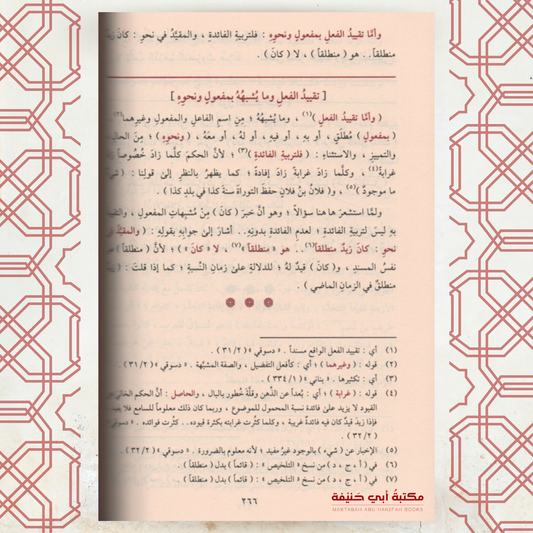 وأمَّا تقييدُ الفعلِ بمفعولٍ ونحوِهِ : فلتربيةِ الفائدةِ ، والمقيَّدُ في نحوِ : كانَ زيدٌ
منطلقاً .. هو ( منطلقاً ) ، لا ( كانَ ) .
[ تقييدُ الفعلِ وما يُشبهُهُ بمفعولٍ ونحوِهِ ]
( وأمَّا تقييدُ الفعلِ )(١) ، وما يُشبهُهُ ؛ مِنِ اسمِ الفاعلِ والمفعولِ وغيرِهما(٢)
( بمفعولٍ ) مُطلَقٍ ، أو بهِ ، أو فيهِ ، أو لهُ ، أو معَهُ ، ( ونحوِهِ ) ؛ مِنَ الحالِ
والتمييزِ ، والاستثناءِ : ( فلتربيةِ الفائدةِ )(٣) ؛ لأنَّ الحكمَ كلَّما زادَ خُصوصاً زادَ
غرابةً(٤) ، وكلَّما زادَ غرابةً زادَ إفادةً ؛ كما يظهرُ بالنظرِ إلىٰ قولِنا : ( شيءٌ
ما موجودٌ )(٥) ، و( فلانُ بنُ فلانٍ حفظَ التوراةَ سنةَ كذا في بلدِ كذا ) .
ولمَّا استشعرَ هاهنا سؤالاً ؛ وهو أنَّ خبرَ ( كانَ ) مِنْ مُشبِهاتِ المفعولِ ، والتقييدُ
بهِ ليسَ لتربيةِ الفائدةِ ؛ لعدمِ الفائدةِ بدونِهِ .. أشارَ إلىٰ جوابِهِ بقولِهِ : ( والمقيَّدُ في
نحوِ : كانَ زيدٌ منطلقاً(٦) .. هو « منطلقاً »(٧) ، لا « كانَ » ) ؛ لأنَّ ( منطلقاً )
نفسُ المسندِ ، و( كانَ ) قيدٌ لهُ ؛ للدلالةِ علىٰ زمانِ النِّسبةِ ؛ كما إذا قلتَ : ( زيدٌ
منطلقٌ في الزمانِ الماضي ) .
(١) أي : تقييد الفعل الواقع مسنداً . « دسوقي » ( ٣١/٢ ) .
(٢) قوله : ( وغيرهما ) ؛ أي : كأفعل التفضيل ، والصفة المشبَّهة . « دسوقي » ( ٣١/٢ ) .
(٣) أي : تكثيرها . « بناني » ( ٣٣٤/١ ) .
(٤) قوله : ( غرابة ) ؛ أي : بُعداً عن الذِّهن وقلَّةَ خُطورٍ بالبال ، والحاصل : أنَّ الحكم الخالي عن
القيود لا يزيد علىٰ فائدة نسبة المحمول للموضوع ، وربما كان ذلك معلوماً للسامع فلا
فإذا زيد قيدٌ كان فيه فائدةٌ غريبة ، وكلما كثُرت غرابته بكثرة قيوده .. كثُرت فوائده . « دسوقي »
( ٣٢/٢ ) .
(٥) الإخبار عن ( شيء ) بالوجود غيرُ مفيد ؛ لأنه معلوم بالضرورة . « دسوقي » ( ٣٢/٢ ) .
(٦) في ( أ ، ج ، د ) من نسخ « التلخيص » : ( قائماً ) بدل ( منطلقاً ) .
(٧) في ( أ ، ج ، د ) من نسخ « التلخيص » : ( قائماً ) بدل ( منطلقاً )
٢٦٦
مكتبة أبي حنيفة
MAKTABAH ABU HANIFAH BOOKS